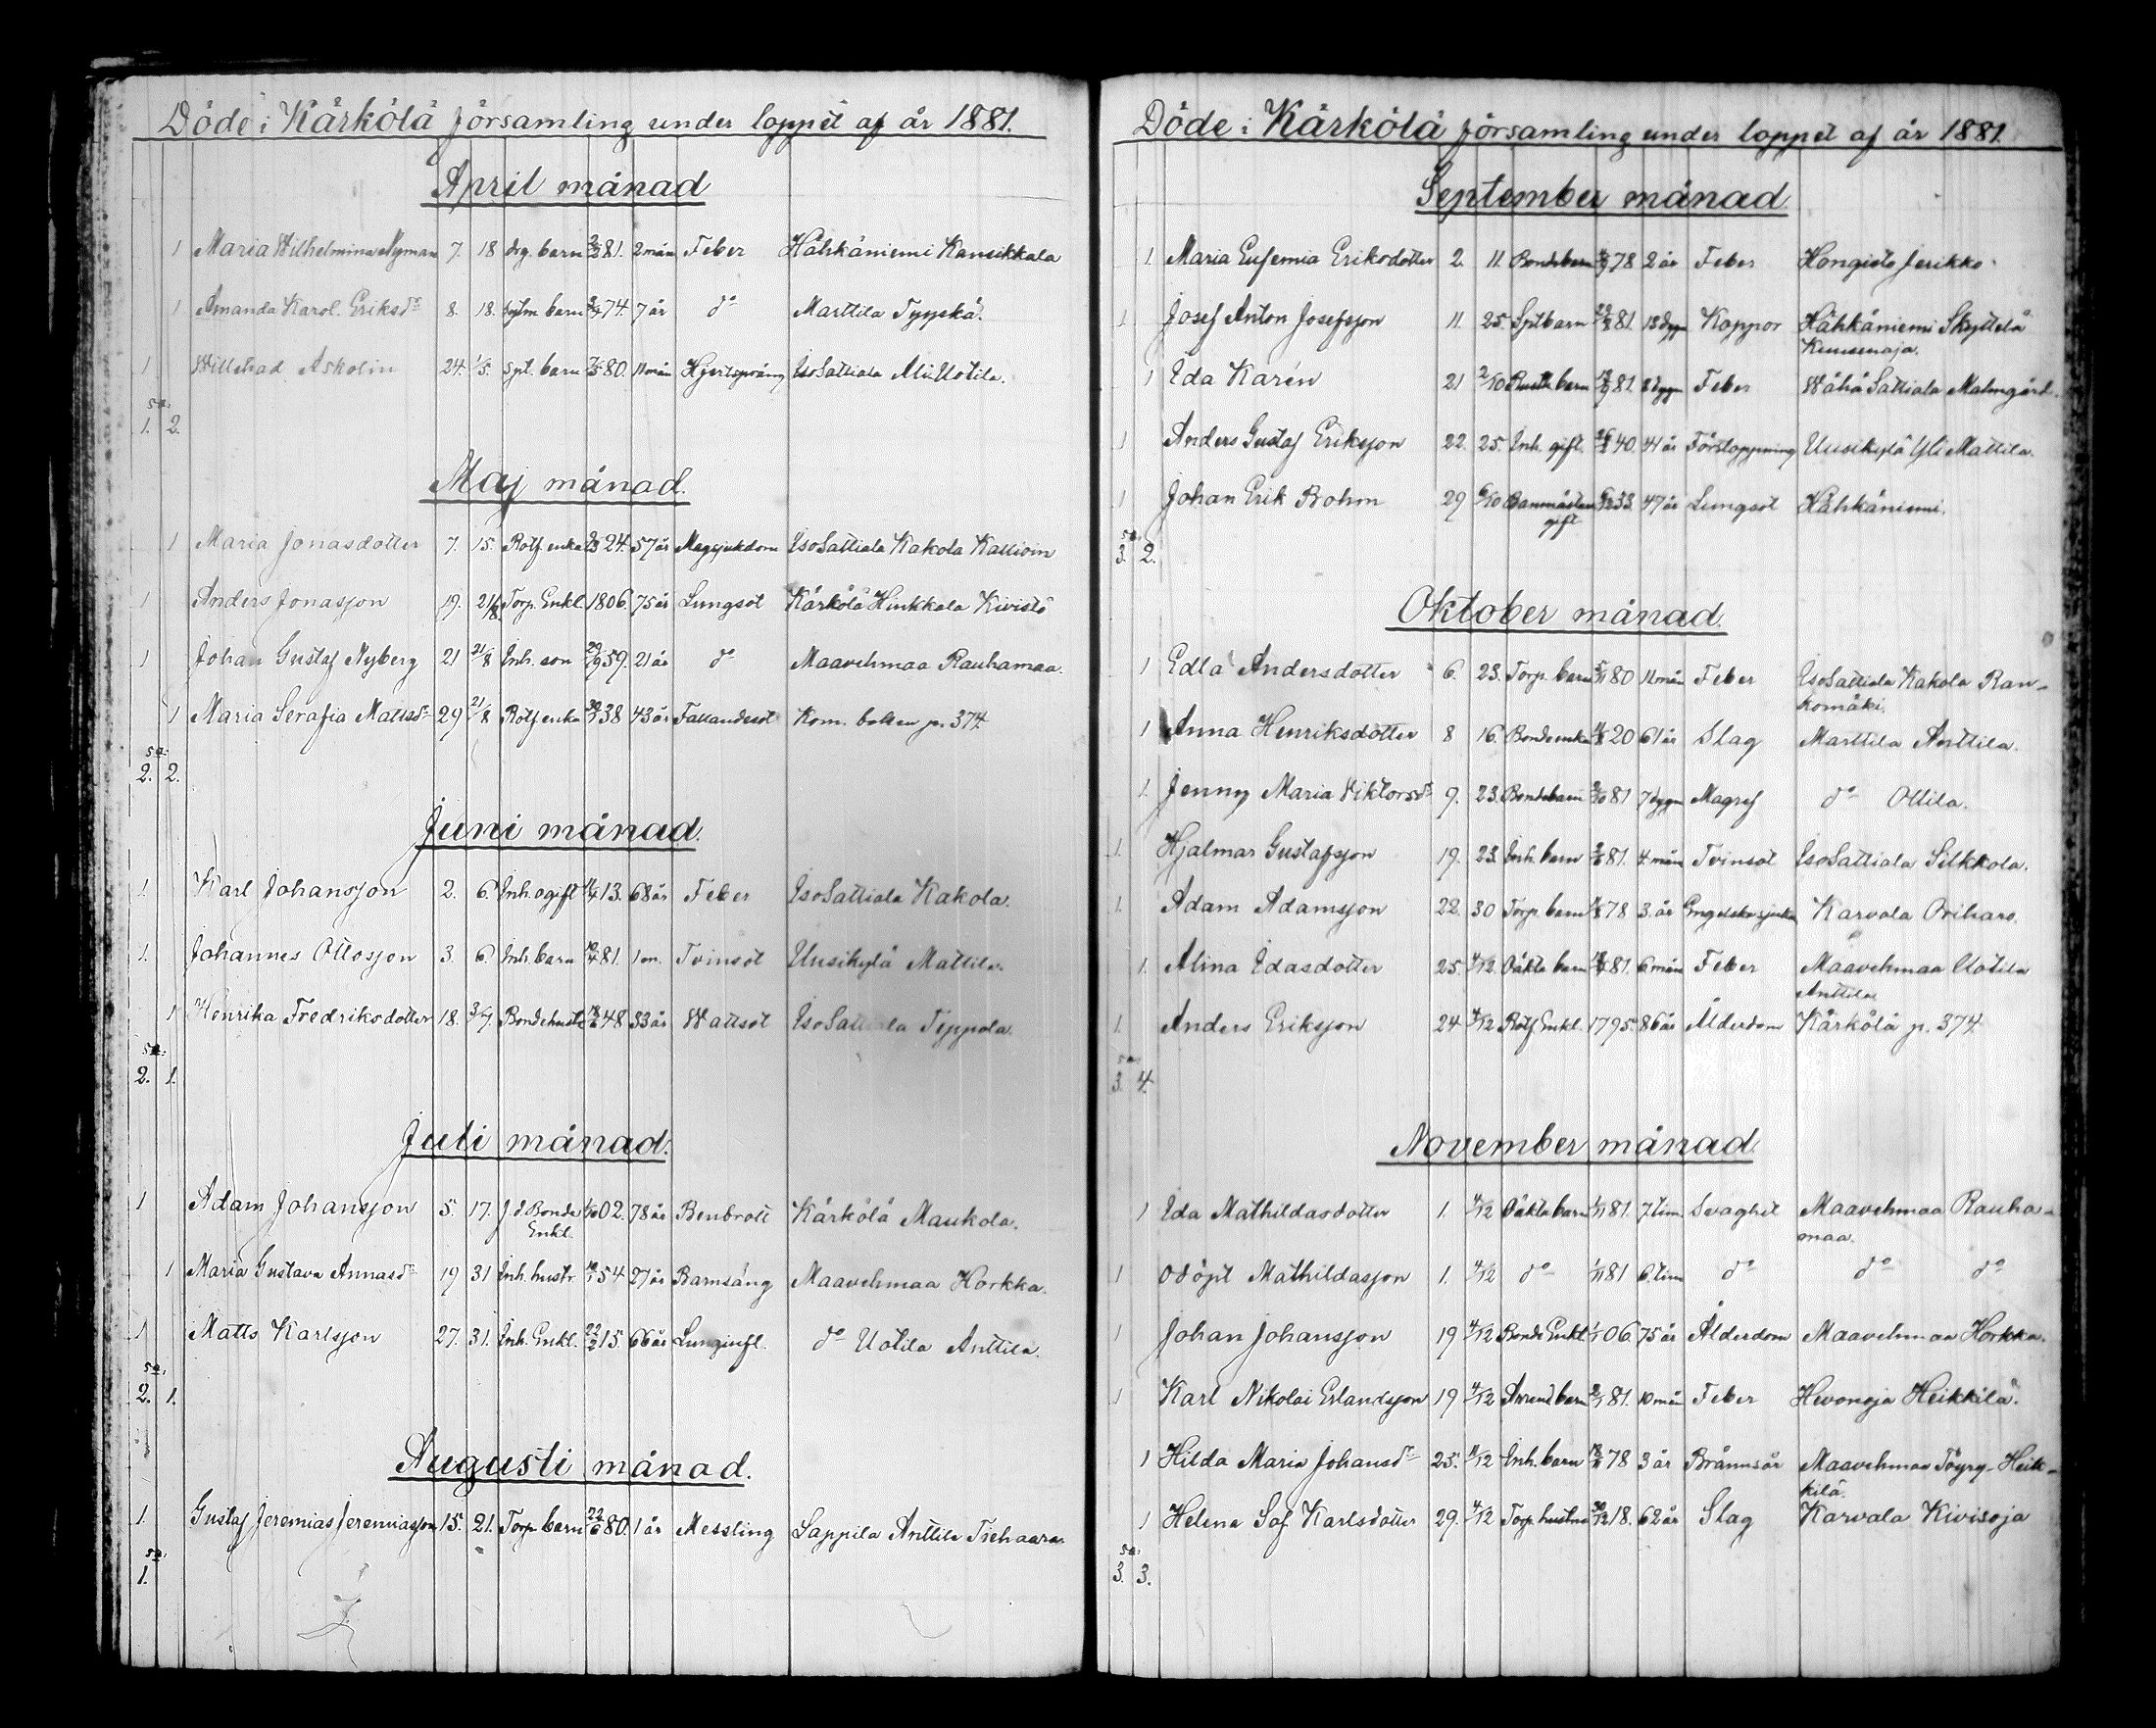 Döde i Kärkölä församling under loppet af år 1881.
April månad
1 Maria Wilhelmina Nyman 7. 18 barn 81. 2 mån Feber Hähkäniemi Kansikkala
1 Amanda Karol. Eriksdr 8. 18. barn 74. 7 år do Marttila Tyyskä.
1 Willehad Askolin 24. 1/5. Spt. barn 80. 11 mån Hjertspräng IsoSattiala Ali Uotila.
Sa:
1. 2.
Maj månad.
1 Maria Jonasdotter 7. 15. Rotf. enka 24. 57 år Magsjukdom IsoSattiala Kakola Kallioin
1 Anders Jonasson 19. 21/8. Torp. Enkl. 1806. 75 år Lungsot Kärkölä Hinkkala Kivistö
1 Johan Gustaf Nyberg 21 21/8 Inh. son 29/9 59. 21 år do Maavehmaa Rauhamaa.
1 Maria Serafia Mattsdr 29 21/8 Rotf enka 38 43 år Fallandesot Kom. boken p. 374.
Sa:
2. 2.
Juni månad.
1. Karl Johansson 2. 6. Inh. ogift 13. 68 år Feber IsoSattiala Kakola.
1. Johannes Ottosson 3. 6. Inh. barn 81. 1 m. Tvinsot Uusikylä Mattila.
1 Henrika Fredriksdotter 18. 3/7. Bondehustr 48 33 år Wattsot IsoSattiala Teppola.
Sa:
2. 1.
Juli månad.
1 Adam Johansson 5. 17. f. d. Bonde 02. 78 år Benbrott Kärkölä Maukola.
Enkl.
1 Maria Gustava Annasdr 19 31 Inh. hustr. 54 27 år Barnsäng Maavehmaa Horkka.
1 Matts Karlsson 27. 31. Inh. Enkl. 22/2 15. 66 år Lunginfl. do Uotila Anttila.
Sa:
2. 1.
Augusti månad.
1. Gustaf Jeremias Jeremiasson 15. 21. Torp. barn 22/6 80. 1 år Messling Lappila Anttila Tiehaara.
Sa:
1.
Döde i Kärkölä församling under loppet af år 1881.
September månad
1. Maria Eufemia Eriksdotter 2. 11. Bondebarn 78 2 år Feber Hongisto Jerikko.
1 Josef Anton Josefsson 11. 25. Sptbarn 81. 18 dygn Koppor Hähkäniemi Skyttelä
Kuusenoja.
1 Ida Karén 21 2/10 barn 81. 2 dygn Feber Wähä Sattiala Malmgård.
1 Anders Gustaf Eriksson 22. 25. Inh. gift. 40. 41 år Förstoppning Uusikylä Yli Mattila.
1 Johan Erik Bohm 29 6/10 Banmästare 33. 47 år Lungsot Hähkäniemi.
gift
Sa:
3. 2.
Oktober månad.
1 Edla Andersdotter 6. 23. Torp. barn 80 11 mån Feber IsoSattiala Kakola Ran-
komäki.
1 Anna Henriksdotter 8 16. Bondeenka 20 61 år Slag Marttila Anttila.
1. Jenny Maria Wiktorsdr 9. 23. Bondebarn 81 7 dygn Magref do Ottila.
1. Hjalmar Gustafsson 19. 23. Inh. barn 81. 4 mån Tvinsot IsoSattiala Silkkola.
1. Adam Adamsson 22. 30 Torp. barn 78 3. år Engelska sjukan Karvala Oriharo.
1. Alina Idasdotter 25. 4/12. Oäkta barn 81. 6 mån Feber Maavehmaa Uotila
Anttila
1. Anders Eriksson 24 4/12 Rotf Enkl. 1795. 86 år Ålderdom Kärkölä p. 374.
Sa:
3. 4.
November månad
1 Ida Mathildasdotter 1. 4/12 Oäkta barn 1/11 81. 7 tim. Svaghet Maavehmaa Rauha-
maa.
1 Odöpt Mathildasson 1. 4/12 do 1/11 81 6. tim do do do
1 Johan Johansson 19 4/12 Bonde Enkl 06. 75 år Ålderdom Maavehmaa Horkka.
1 Karl Nikolai Erlandsson 19 4/12 Arrend barn 81. 10 mån Feber Hevonoja Heikkilä.
1 Hilda Maria Johansdr 25. 11/12 Inh. barn 78 3 år Brännsår Maavehmaa Töyry-Heik-
kilä.
1 Helena Sof. Karlsdotter 29. 4/12 Torp. hustru 30/12 18. 62 år Slag Karvala Kivisoja
Sa:
3. 3.